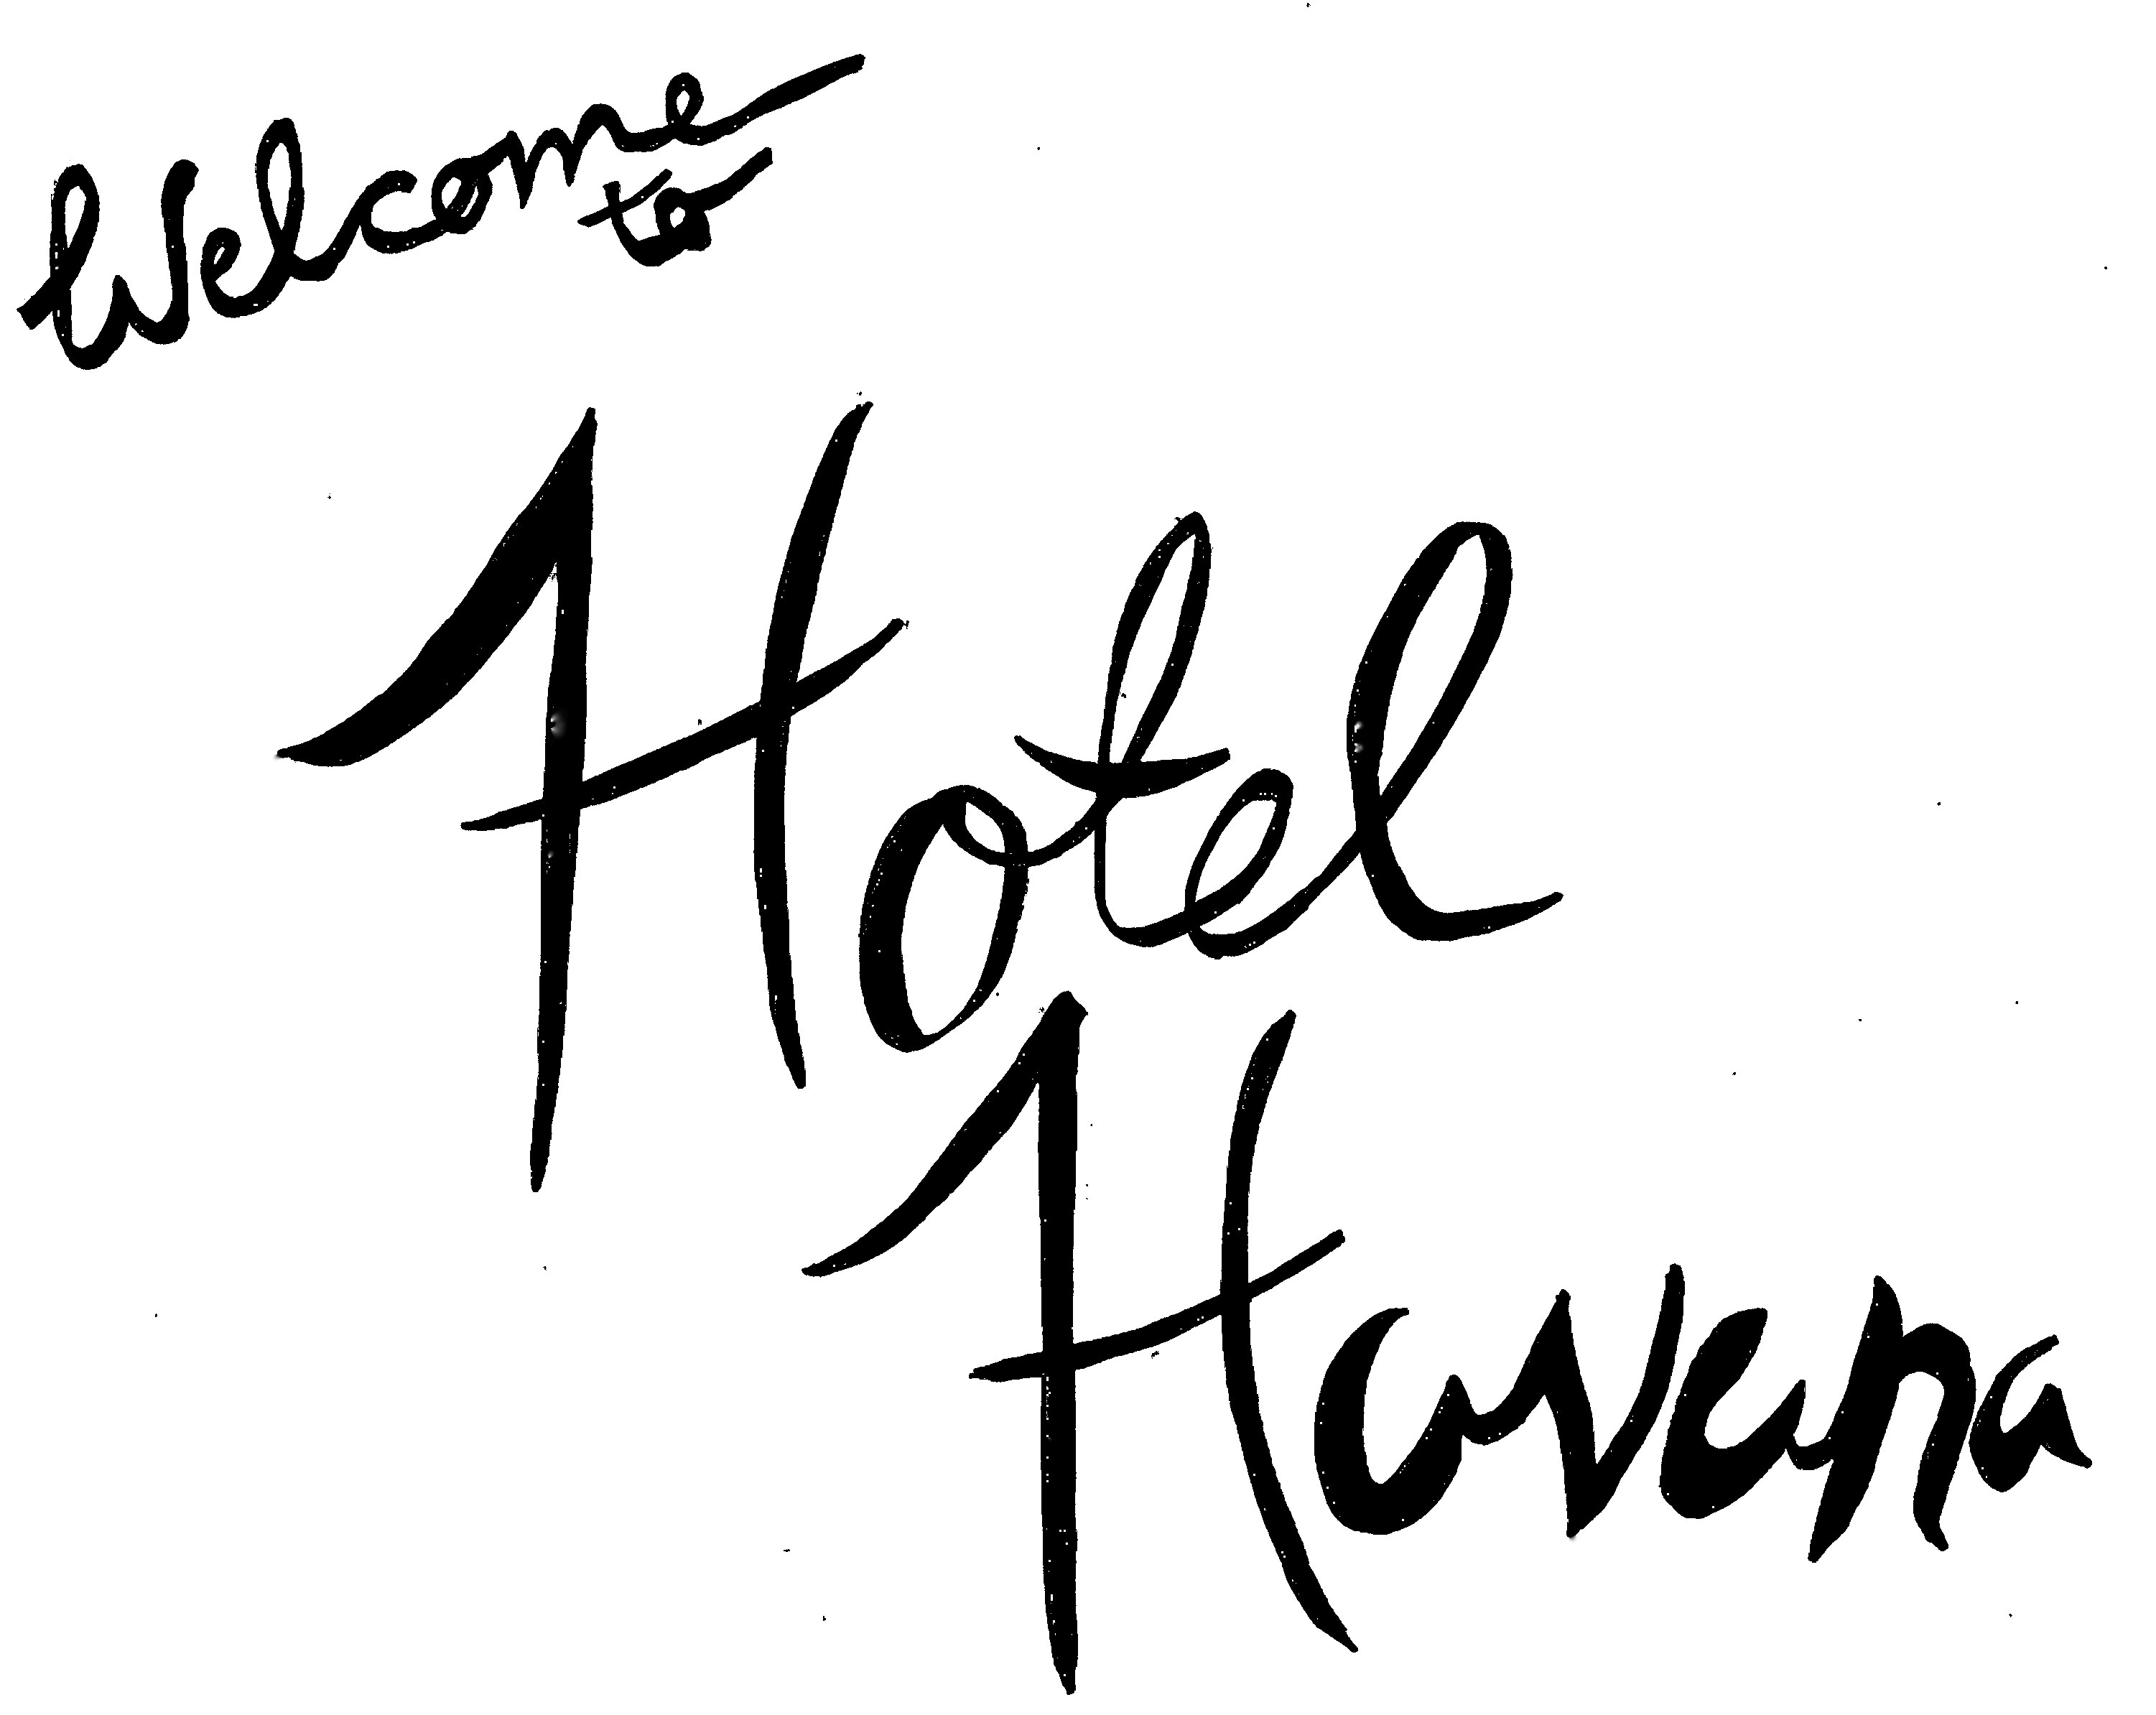 Welcome
to
Hotel
Havana